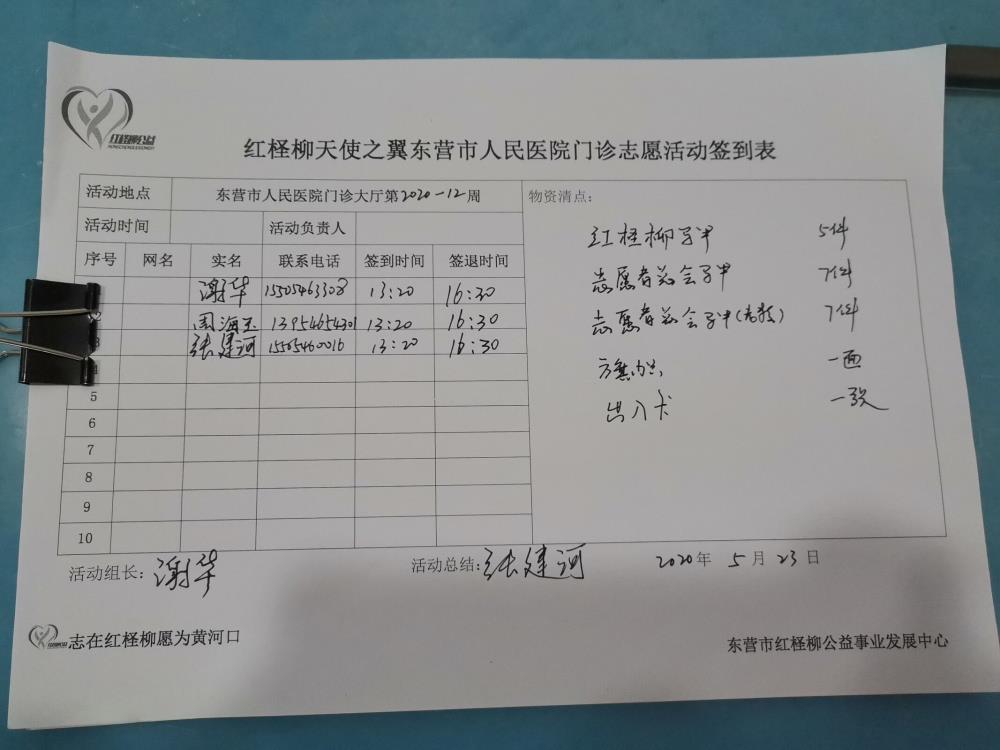 红柽柳公益
红柽柳天使之翼东营市人民医院门诊志愿活动签到表
活动地点 东营市人民医院门诊大厅第2020-12周
物资清点：
活动时间 活动负责人
序号 网名 实名 联系电话 签到时间 签退时间
谢华 15505463308 13:20 16:30
2 周海玉 13954654301 13:20 16:30
3 张建河 15505460016 13:20 16:30
5
6
7
8
9
10
红柽柳马甲 5件
志愿者总会马甲 7件
志愿者总会马甲 7件
一面
出入卡 一张
活动组长：谢华 活动总结：张建河 2020年5月23日
志在红柽柳愿为黄河口
东营市红柽柳公益事业发展中心